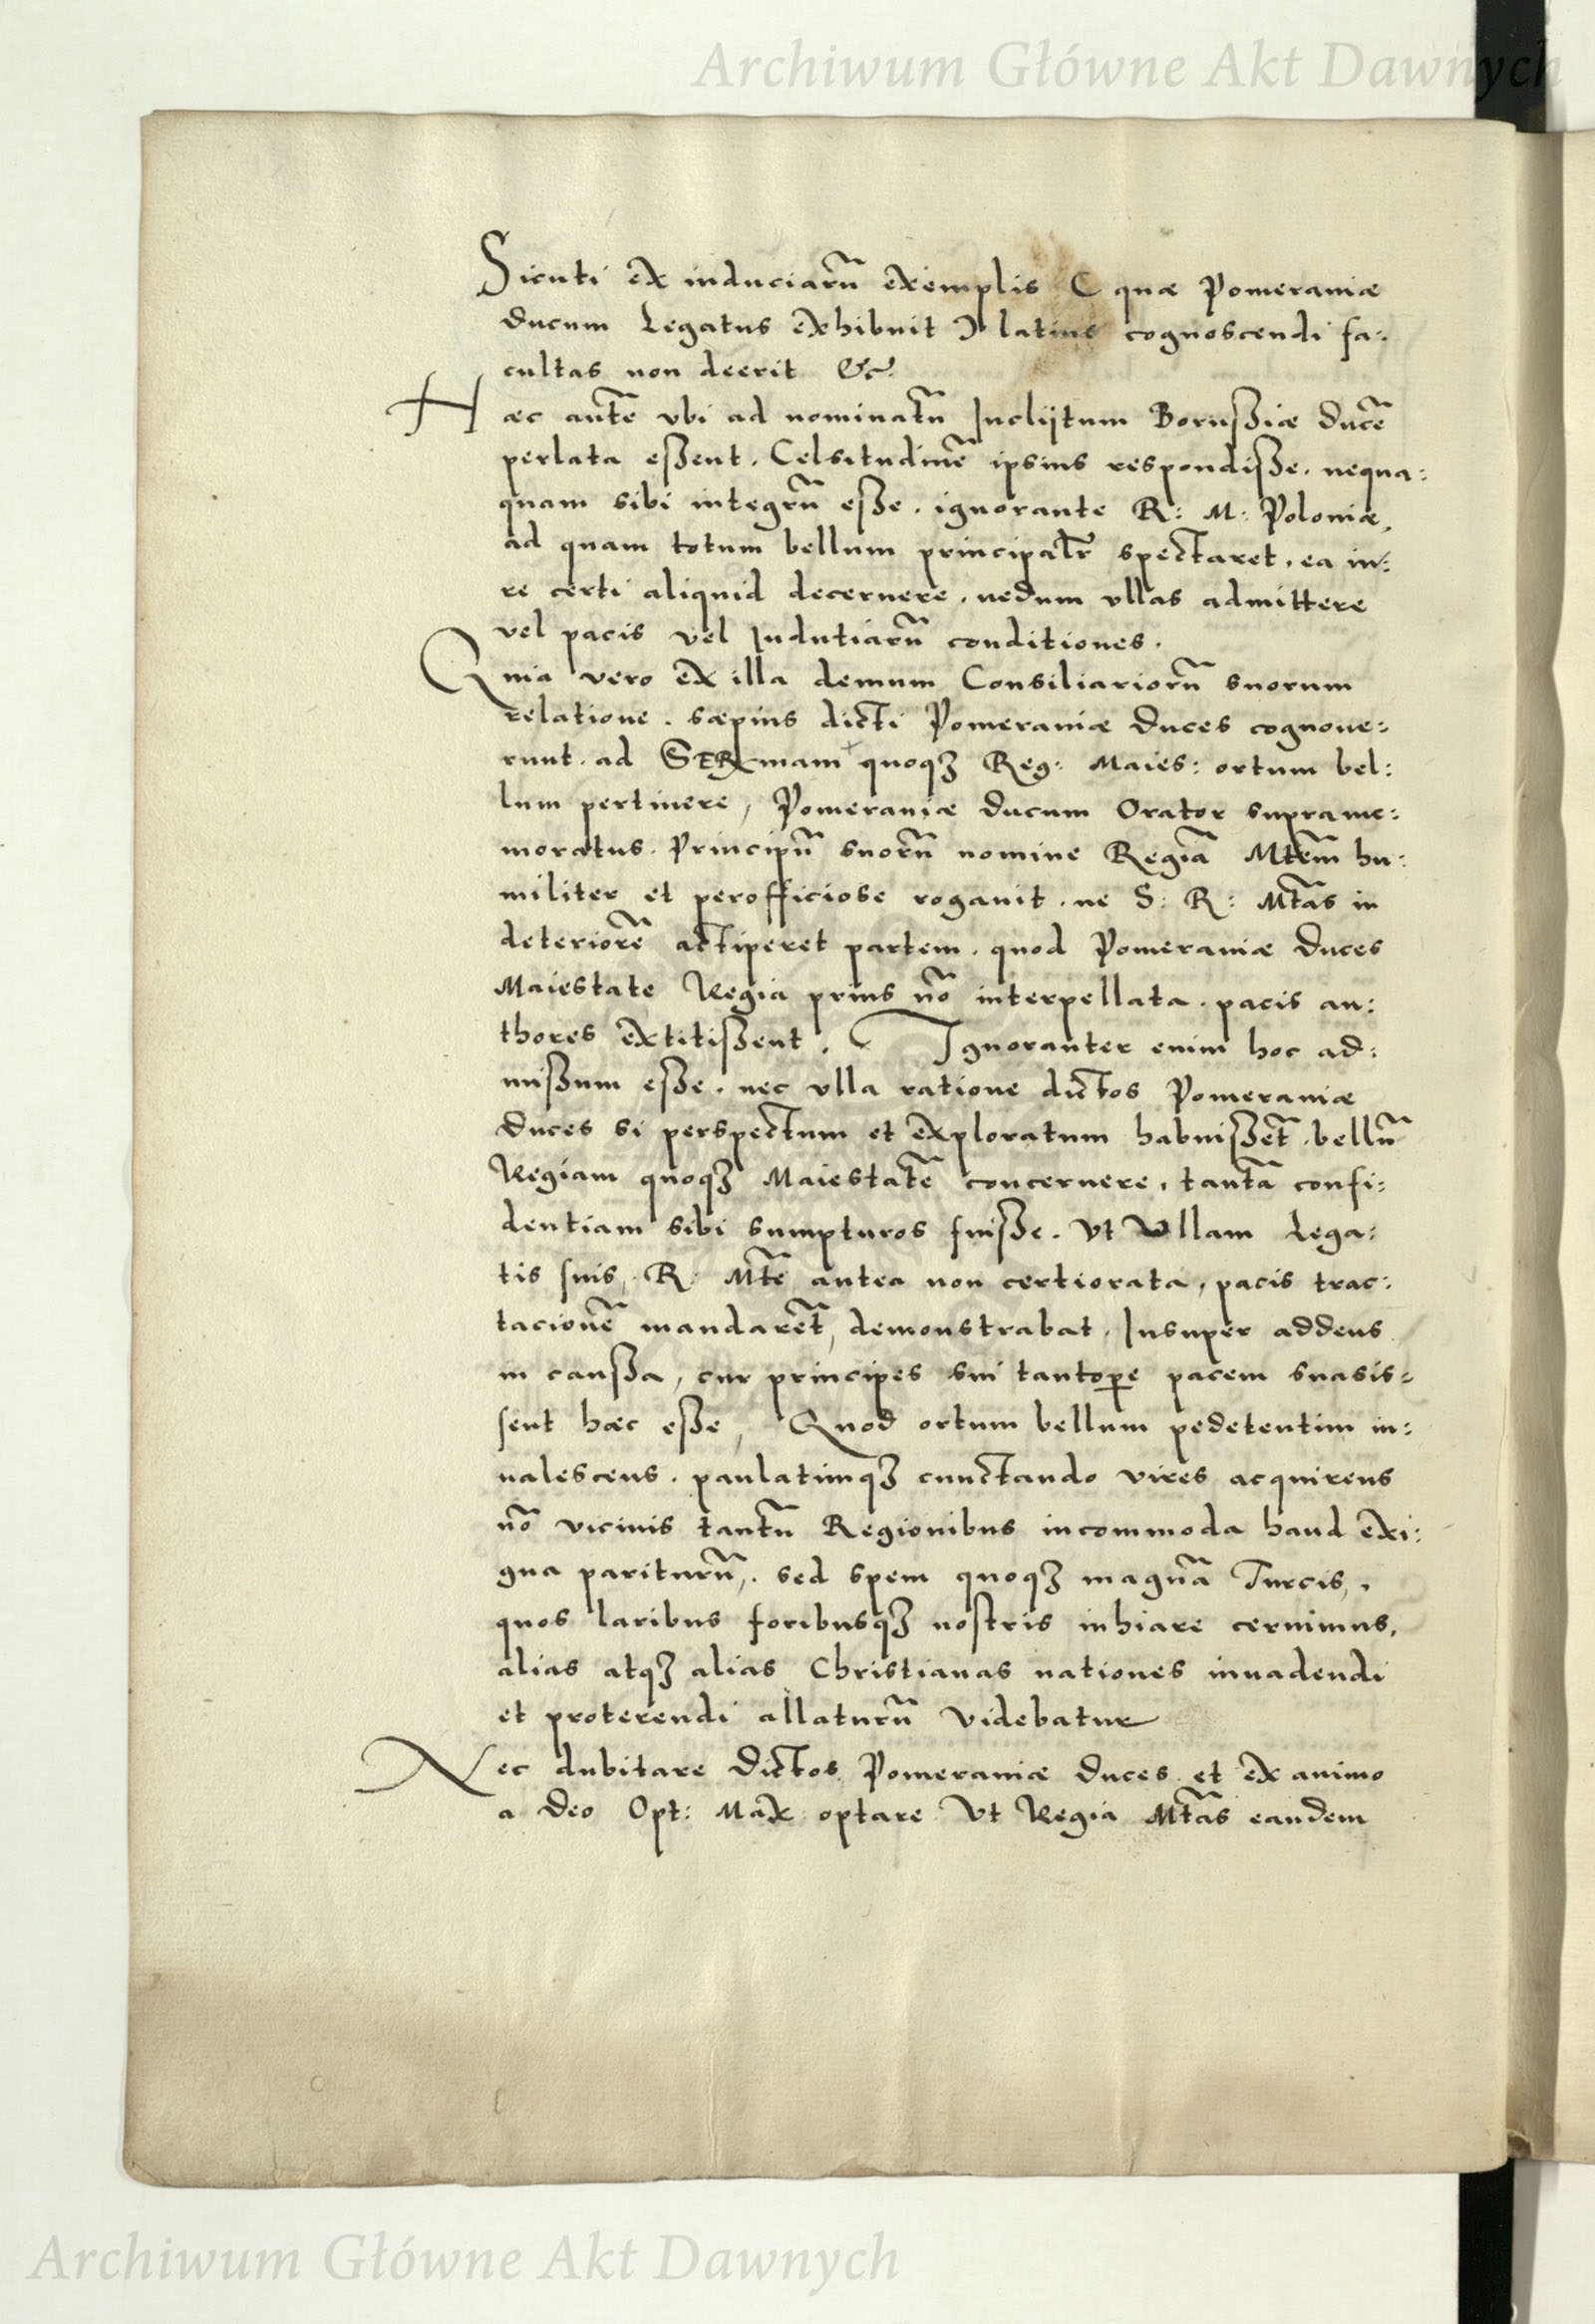 Archiwum Główne Akt Dawnych
Sicuti ex induciarũ exemplis ( quæ Pomeraniæ
ducum Legatus exhibuit ) latius cognoscendi fa:
cultas non deerit &c̃.
Hæc autẽ vbi ad nominatũ Inclijtum Borußiæ Ducẽ
perlata eßent. Celsitudinẽ ipsius respondiße. nequa:
quam sibi integrũ eße. ignorante R: M: Poloniæ,
ad quam totum bellum principalr̃ spectaret, ea in:
re certi aliquid decernere. nedum vllas admittere
vel pacis vel Indutiarũ conditiones.
Quia vero ex illa demum Consiliariorũ suorum
relatione. sæpius dicti Pomeraniæ Duces cognoue:
runt. ad SERmam quoqꝫ Reg: Maies: ortum bel:
lum pertinere, Pomeraniæ ducum Orator suprame:
moratus. Principũ suorũ nomine Regiã Mtẽm hu:
militer et perofficiose rogauit. ne S: R: Mtãs in
deteriorẽ acciperet partem. quod Pomeraniæ Duces
Maiestate Regia prius nõ interpellata. pacis au:
thores extitißent. Ignoranter enim hoc ad:
mißum eße. nec vlla ratione dictos Pomeraniæ
duces si perspectum et exploratum habuißẽt. bellũ
Regiam quoqꝫ Maiestatẽ concernere, tantã confi:
dentiam sibi sumpturos fuiße. Vt Vllam Lega:
tis suis, R: Mtẽ antea non certiorata, pacis trac:
tacionẽ mandarẽt, demonstrabat. Insuper addens
in caußa, cur principes sui tantoꝑe pacem suasis=
sent hæc eße, Quod ortum bellum pedetentim in:
ualescens. paulatimqꝫ cunctando vires acquirens
nõ vicinis tantũ Regionibus incommoda haud exi:
gua pariturũ,. sed spem quoqꝫ magnã Turcis,.
quos laribus foribusqꝫ nostris inhiare cernimus,
alias atqꝫ alias Christianas nationes inuadendi
et proterendi allaturũ Videbatur
Nec dubitare Dictos Pomeraniæ duces et ex animo
a Deo Opt: Max: optare Vt Regia Mtãs eandem
Archiwum Główne Akt Dawnych